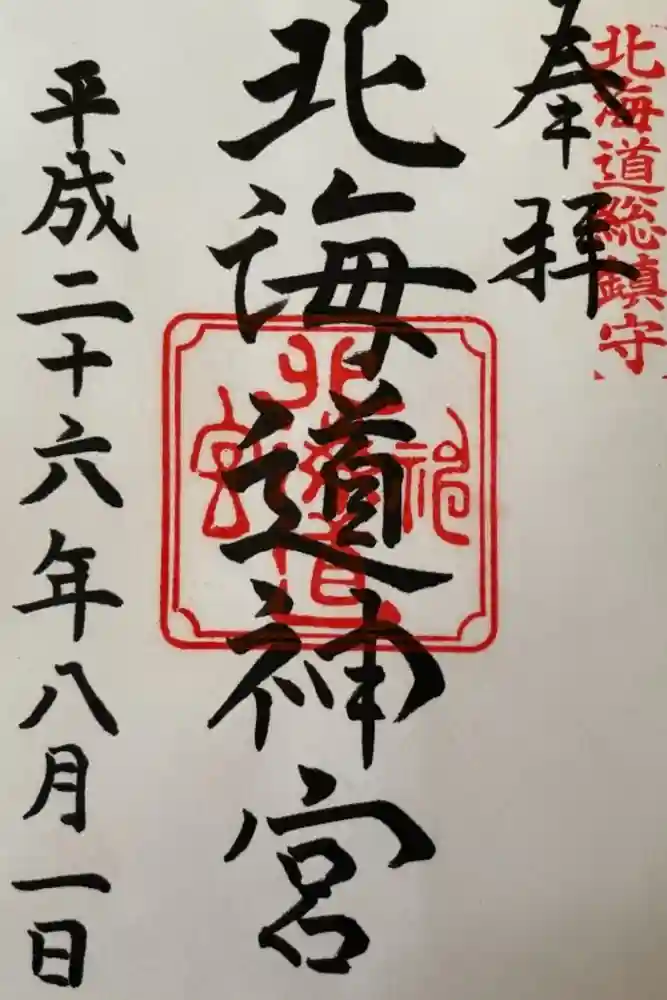 北海道総鎮守
奉拝
北海道神宮
北海道神宮
平成二十六年八月一日